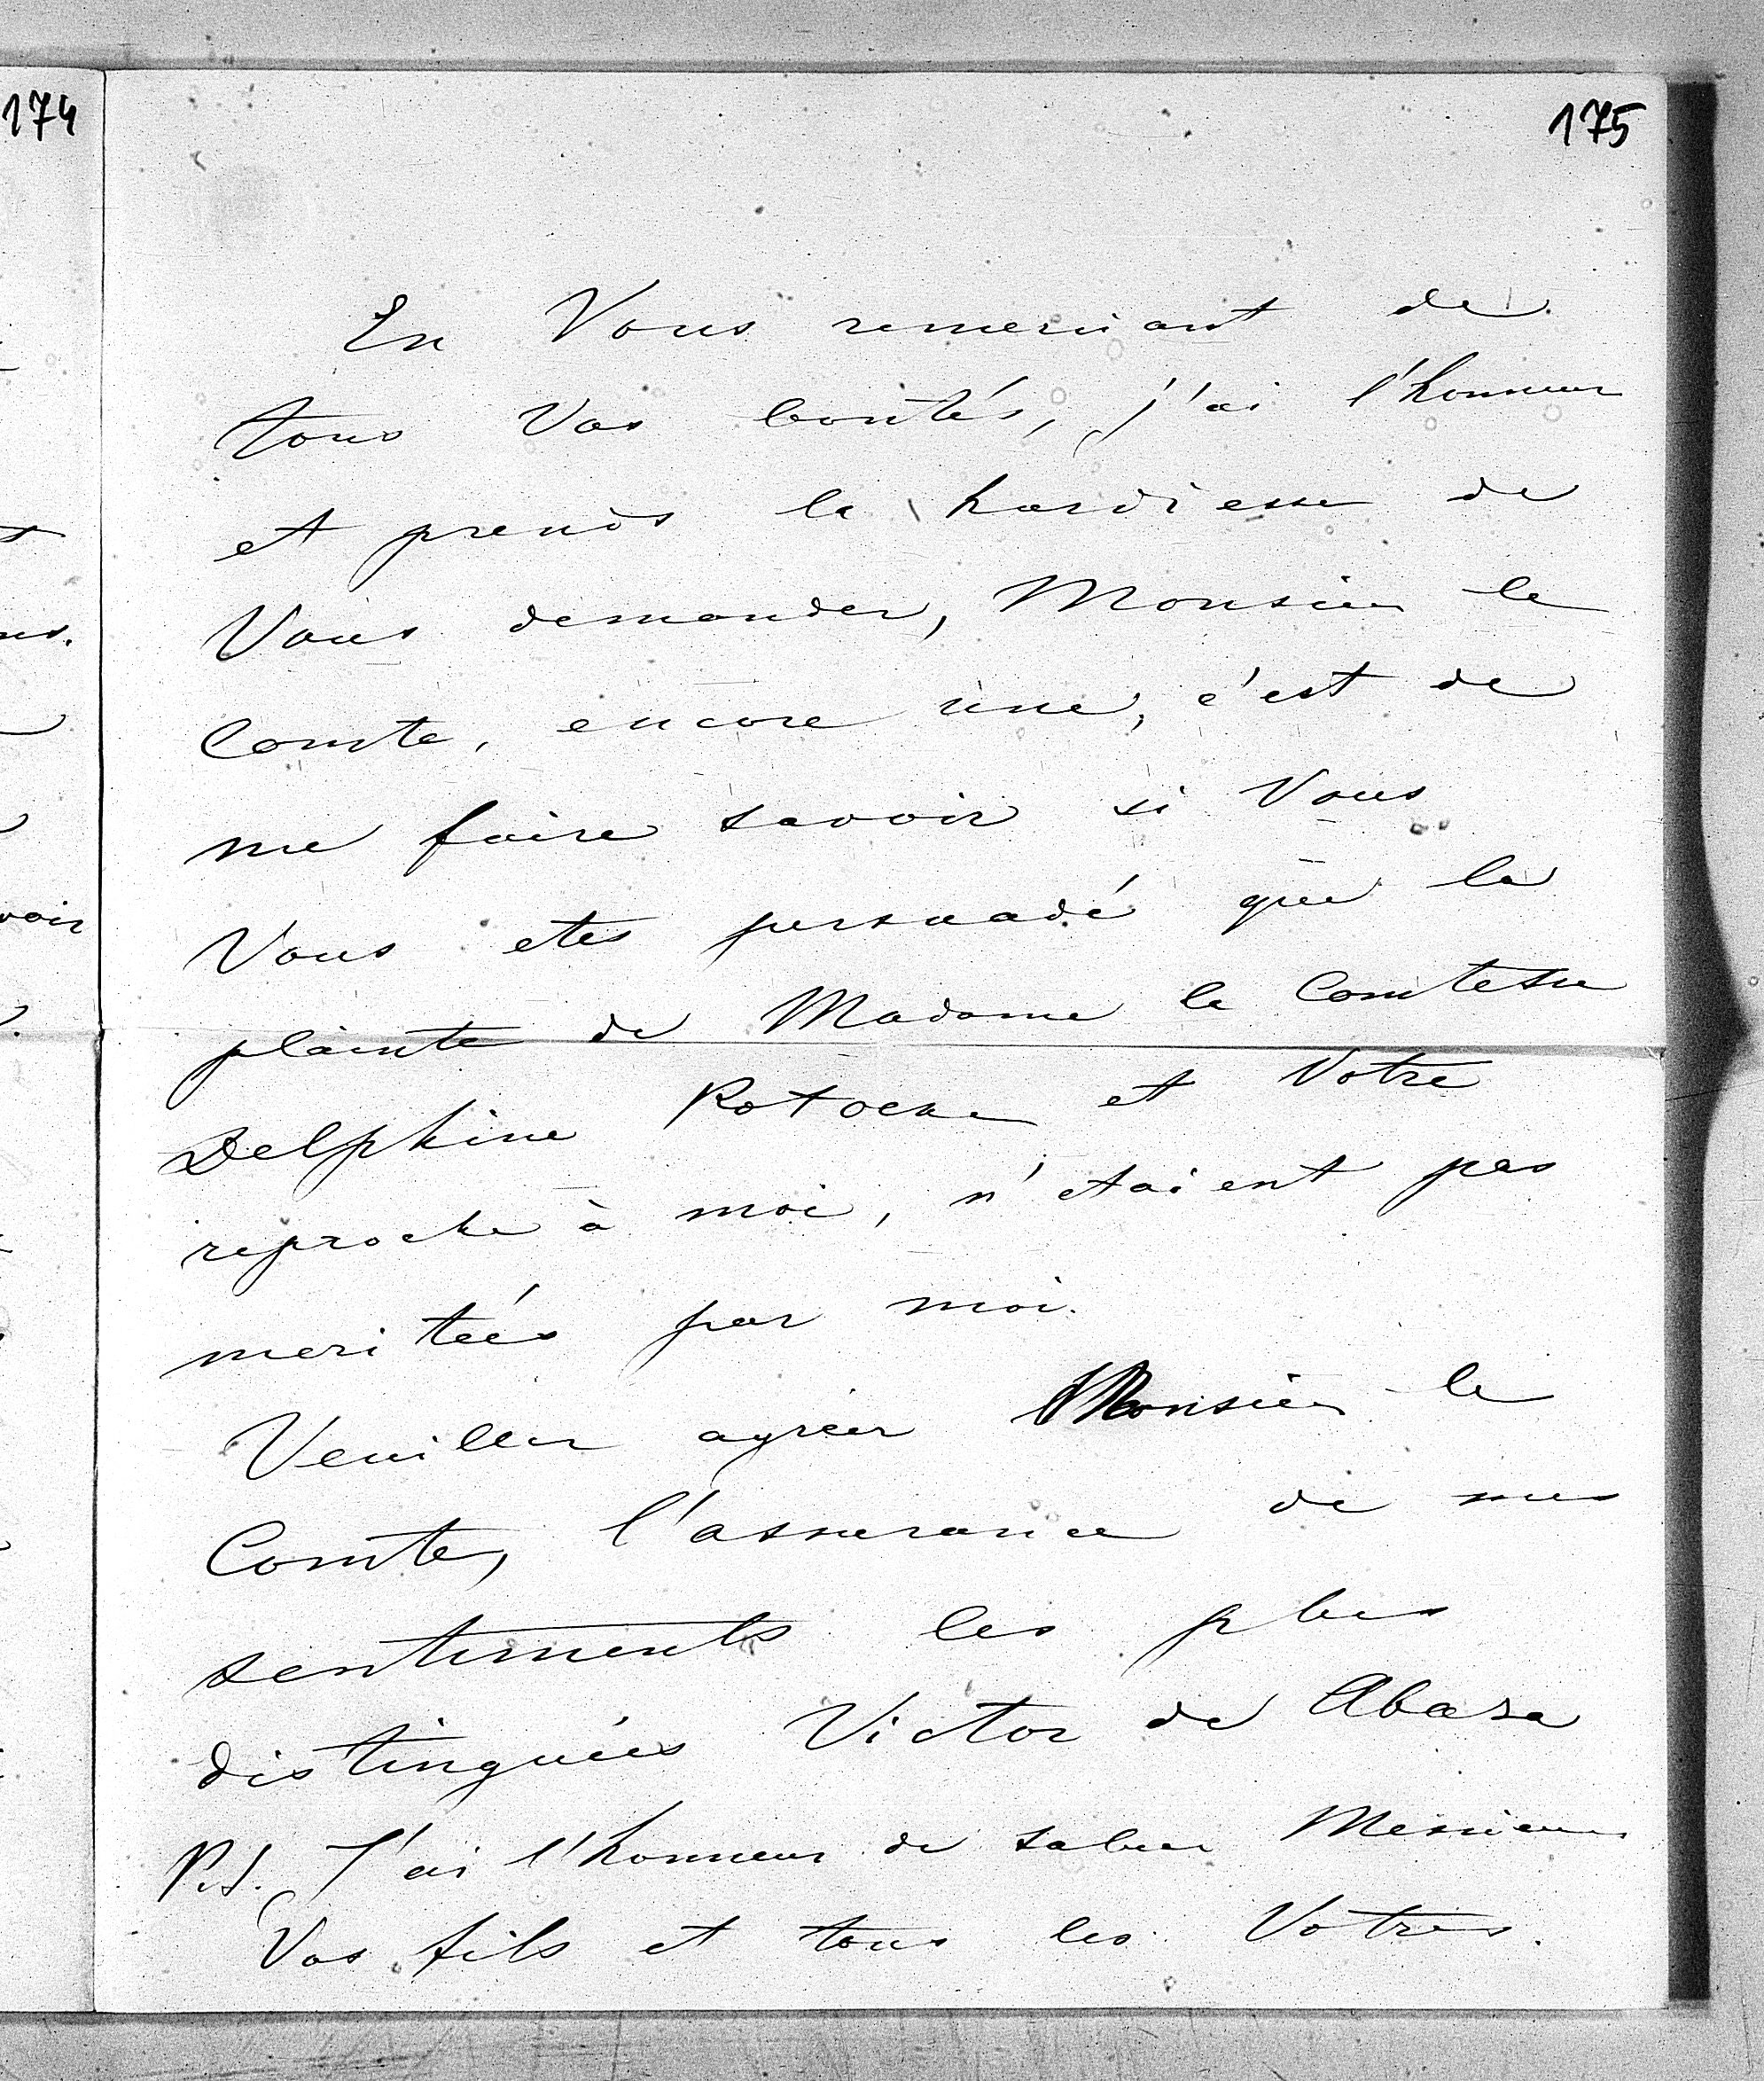 174
175
En Vous remerciant de
tous Vos bontés, j'ai l'honneur
et prends la hardiesse de
Vous demander, Monsieur le
Comte, encore une, c'est de
me faire savoir si Vous
Vous etes persuadé que la
plainte de Madame la Comtesse
Delphine Potocka et Votre
reproche à moi, n'etaient pas
meritées par moi.
Veuillez agréer Monsieur le
Comte, l'assurance de mes
sentiments les plus
distinguées Victor de Abaza
P.S. J'ai l'honneur de saluer Messieurs
Vos fils et tous les Votres.